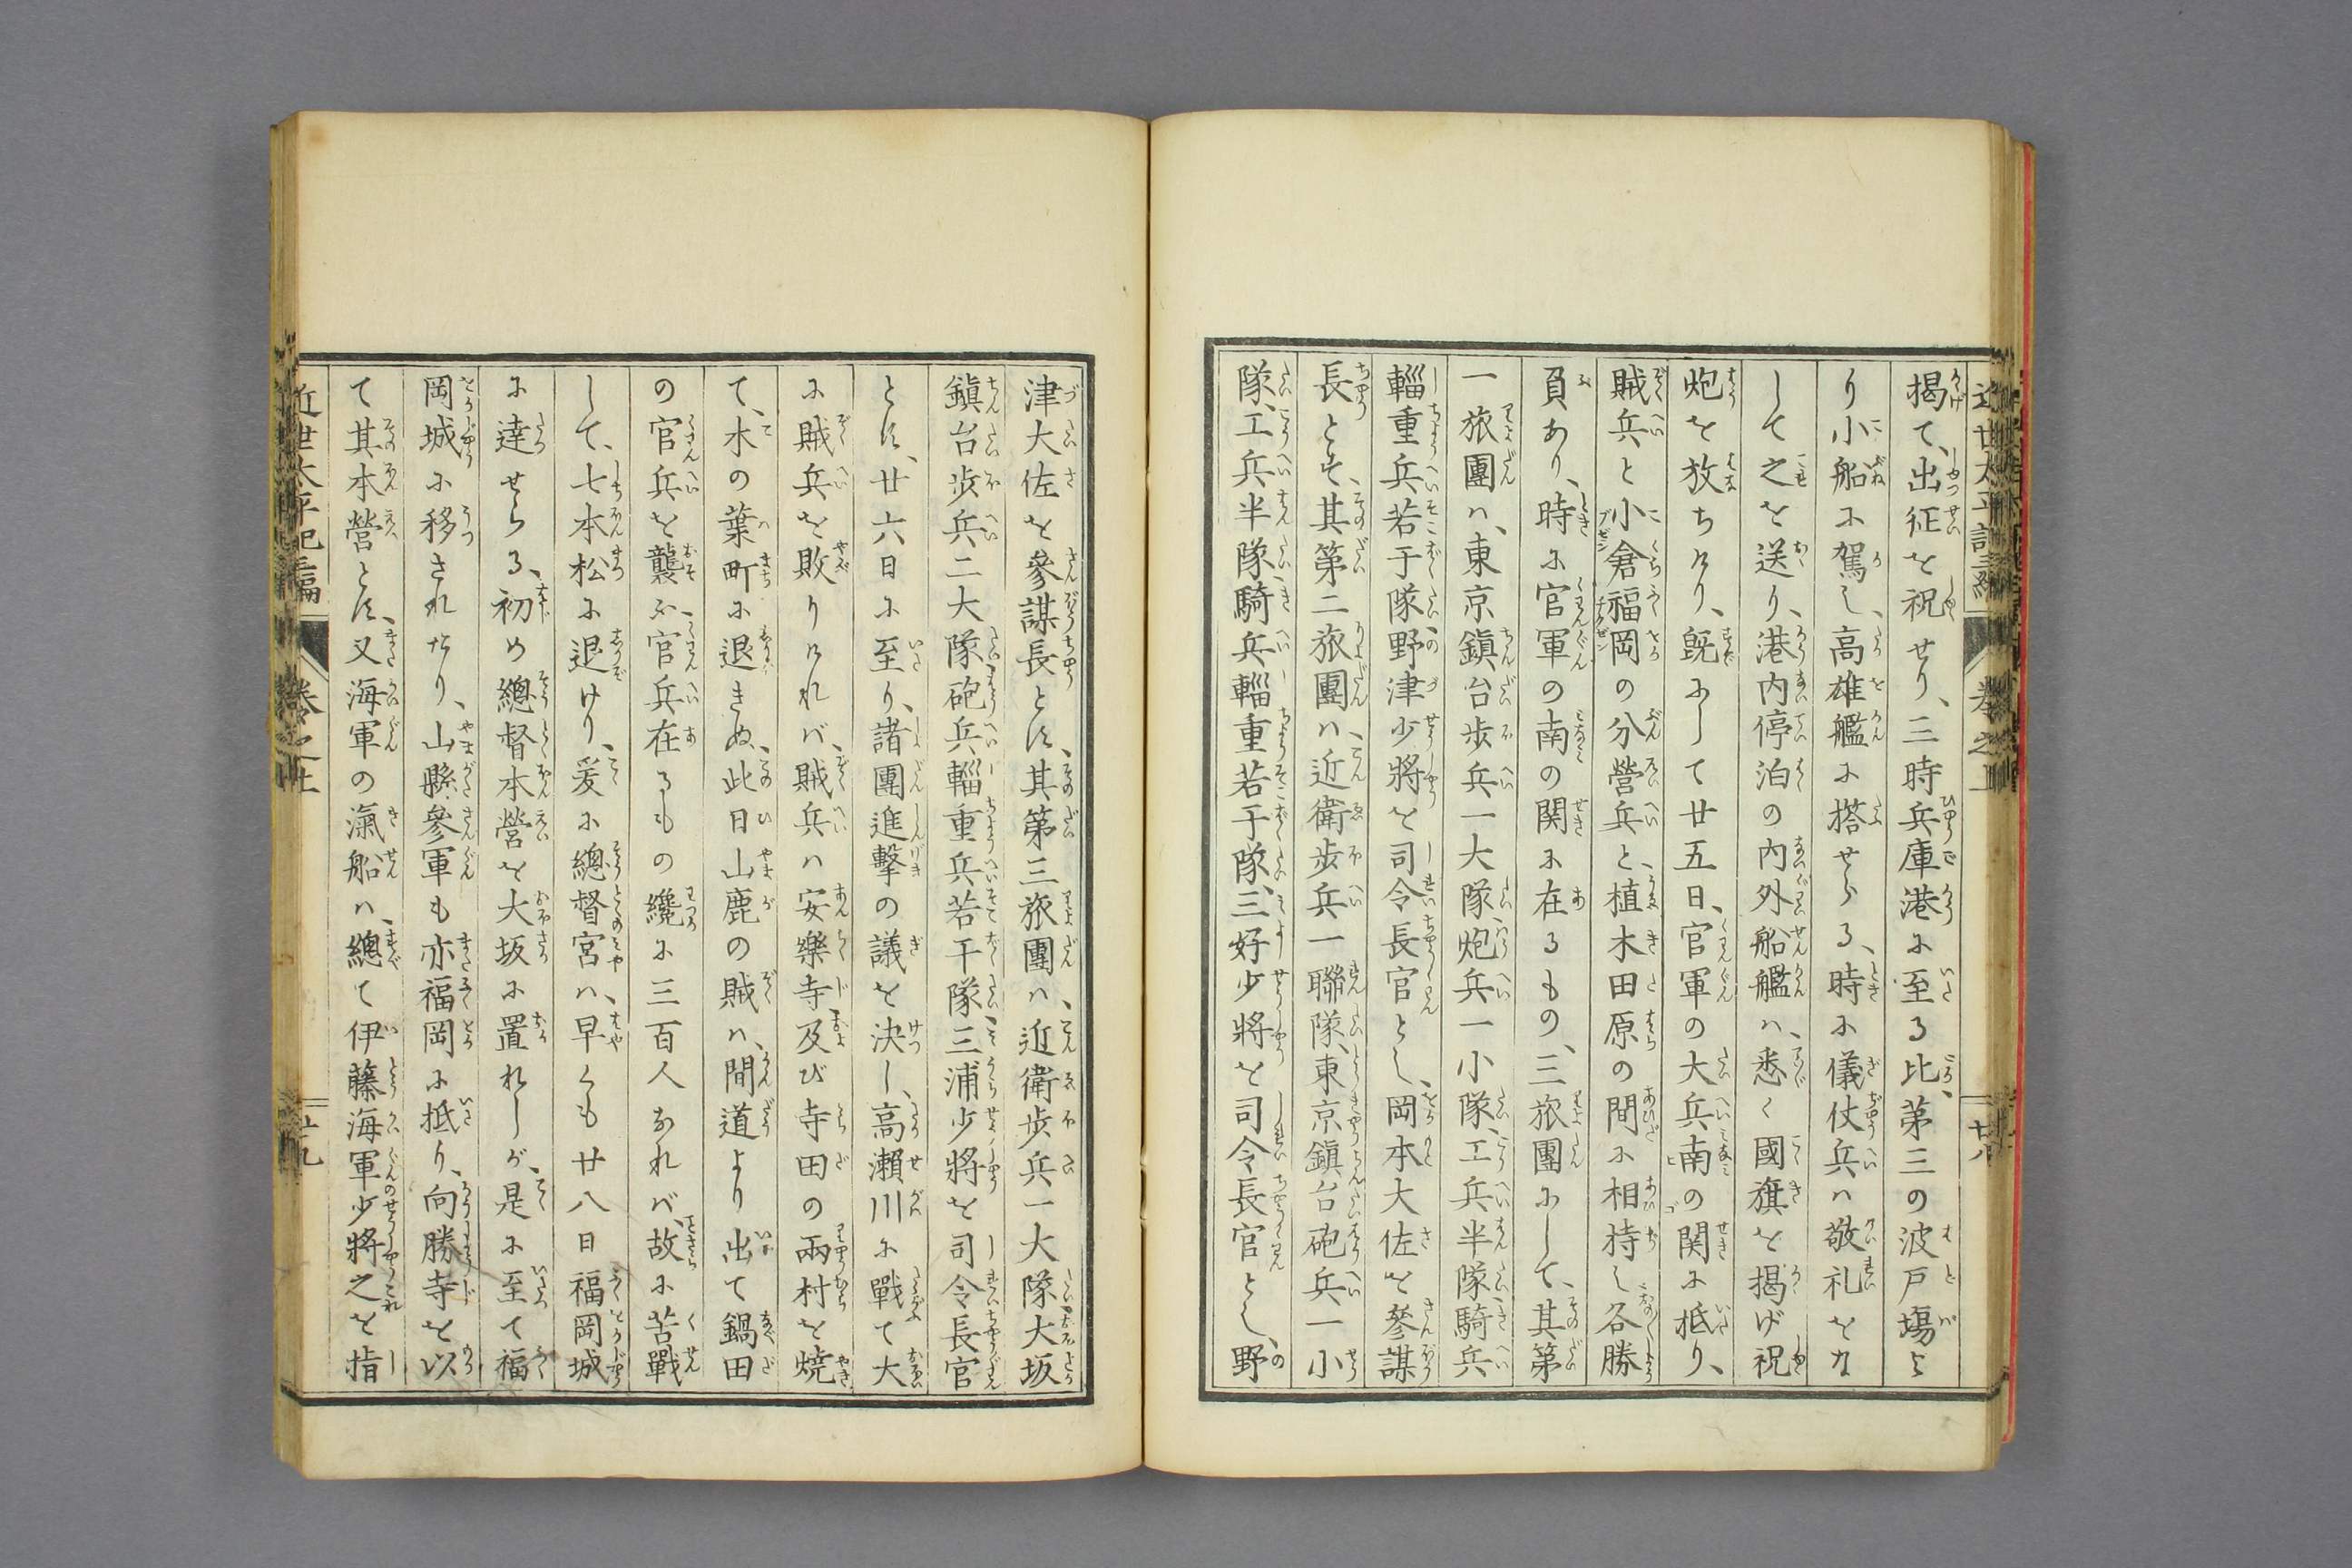 近世太平記三編 巻之上 廿八
揭て、出征を祝せり、三時兵庫港に至る比、第三の波戸塲よ
り小船に駕し、高雄艦に搭せらる、時に儀仗兵ハ敬礼をな
して之を送り、港内停泊の内外船艦ハ、悉く國旗を揭げ祝
炮を放ちけり、既にして廿五日、官軍の大兵南の関に抵り、
賊兵と小倉福岡の分營兵と、植木田原の間に相持し各勝
負あり、時に官軍の南の関に在るもの、三旅團にして、其第
一旅團ハ、東京鎭台歩兵一大隊、炮兵一小隊、工兵半隊、騎兵
輜重兵若干隊、野津少將を司令長官とし、岡本大佐を參謀
長とす、其第二旅團ハ、近衛歩兵一聯隊、東京鎭台砲兵一小
隊、工兵半隊騎兵輜重若干隊、三好少將を司令長官とし、野
津大佐を參謀長とす、其第三旅團ハ、近衛歩兵一大隊大坂
鎭台歩兵二大隊砲兵輜重兵若干隊、三浦少將を司令長官
とす、廿六日に至り、諸團進擊の議を決し、高瀬川に戰て大
に賊兵を敗りけれバ、賊兵ハ安樂寺及び寺田の兩村を焼
て、木の葉町に退きぬ、此日山鹿の賊ハ、間道より出て鍋田
の官兵を襲ふ、官兵在るもの纔に三百人なれバ、故に苦戰
して、七本松に退けり、爰に總督宮ハ、早くも廿八日福岡城
に達せらる、初め總督本營を大坂に置れしが、是に至て福
岡城に移されたり、山縣參軍も亦福岡に抵り、向勝寺を以
て其本營とす、又海軍の滊船ハ、總て伊藤海軍少將之を指
近世太平記三編 巻之上 廿九